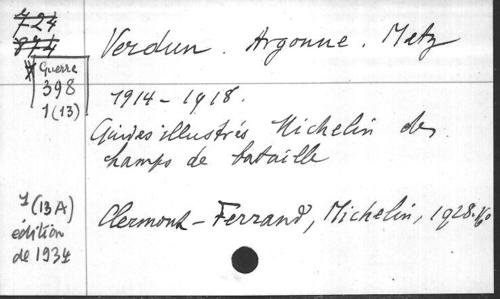 724
874
Guerre
398
1(13)
Verdun. Argonne. Metz
1914-1918.
Guides illustrés Michelin des
champs de bataille
1(13A)
édition
de 1934
Clermont-Ferrand, Michelin, 1928.